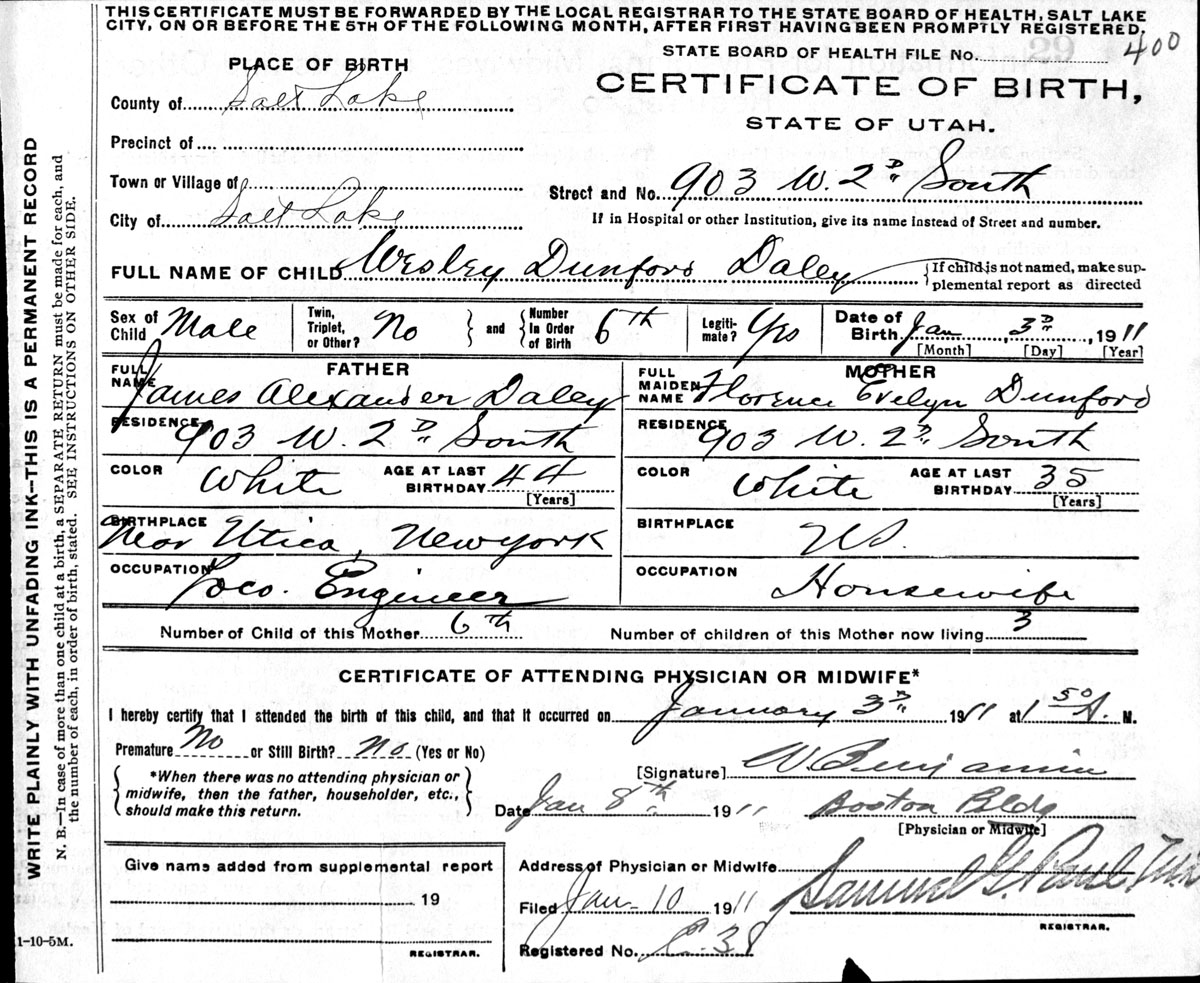 THIS CERTIFICATE MUST BE FORWARDED BY THE LOCAL REGISTRAR TO THE STATE BOARD OF HEALTH, SALT LAKE
CITY, ON OR BEFORE THE 5TH OF THE FOLLOWING MONTH, AFTER FIRST HAVING BEEN PROMPTLY REGISTERED.
STATE BOARD OF HEALTH FILE No. 400
PLACE OF BIRTH
CERTIFICATE OF BIRTH,
STATE OF UTAH.
County of Salt Lake
Precinct of
Town or Village of
Street and No. 903 W. 2D South
City of Salt Lake
If in Hospital or other Institution, give its name instead of Street and number.
FULL NAME OF CHILD Wesley Dunford Daley
{If child is not named, make sup-
plemental report as directed
Sex of Child Male
Twin, Triplet, or Other? No } and { Number In Order of Birth 6th
Legiti-mate? Yes
Date of Birth Jan 3D, 1911
[Month] [Day] [Year]
FATHER
MOTHER
FULL NAME James Alexander Daley
FULL MAIDEN NAME Florence Evelyn Dunford
RESIDENCE 903 W. 2D South
RESIDENCE 903 W. 2D South
COLOR White AGE AT LAST BIRTHDAY 44 [Years]
COLOR White AGE AT LAST BIRTHDAY 35 [Years]
BIRTHPLACE Near Utica, New York
BIRTHPLACE US.
OCCUPATION Loco. Engineer
OCCUPATION Housewife
Number of Child of this Mother 6th
Number of children of this Mother now living 3
CERTIFICATE OF ATTENDING PHYSICIAN OR MIDWIFE*
I hereby certify that I attended the birth of this child, and that it occurred on January 3D 1911 at 1 50 A. M.
Premature No or Still Birth? No (Yes or No)
{ *When there was no attending physician or
midwife, then the father, householder, etc.,
should make this return. }
[Signature] W. Benjamin
Date Jan 8th 1911 Boston Bldg
[Physician or Midwife]
Give name added from supplemental report
19
REGISTRAR.
Address of Physician or Midwife
Filed Jan-10 1911 Samuel G. Paul, M.D.
REGISTRAR.
Registered No. C-38
1-10-5M.
WRITE PLAINLY WITH UNFADING INK—THIS IS A PERMANENT RECORD
N. B.—In case of more than one child at a birth, a SEPARATE RETURN must be made for each, and
the number of each, in order of birth, stated. SEE INSTRUCTIONS ON OTHER SIDE.